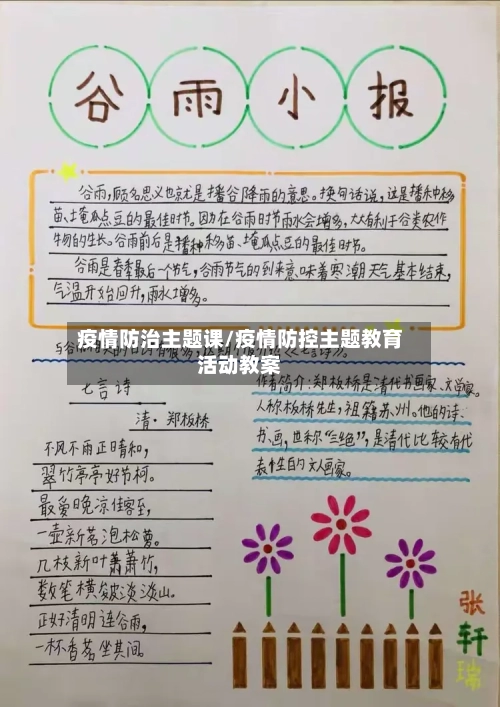 谷雨小报
谷雨,顾名思义也就是播谷降雨的意思。换句话说,这是播种移
苗、埯瓜点豆的最佳时节。因为在谷雨时节雨水会增多,大大有利于谷类农作
物的生长。谷雨前后是播种移苗、埯瓜点豆的最佳时节。
谷雨是春季最后一个节气,谷雨节气的到来意味着寒潮天气基本结束,
气温开始回升,雨水增多。
与谷雨
疫情防治主题课/疫情防控主题教育
活动教案
七言诗
清·郑板桥
不风不雨正日晴和,
翠竹亭亭好节柯。
最爱晚凉佳客至,
一壶新茗泡松萝。
几枝新叶萧萧竹,
数笔横皴淡淡山。
正好清明连谷雨,
一杯香茗坐其间。
作者简介:郑板桥是清代书画家、文学家。
人称板桥先生,祖籍苏州。他的诗、
书、画,世称“三绝”,是清代比较有代
表性的文人画家。
张
轩
瑞